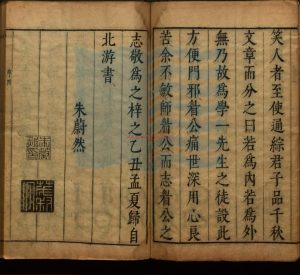 笑人者至使通綜君子品千秋
文章而分之曰若為內若為外
無乃故為學一先生之徒設此
方便門邪着公痛世深用心良
苦余不敏師着公而志着公之
志敬為之梓之乙丑孟夏歸自
北游書
朱蔚然